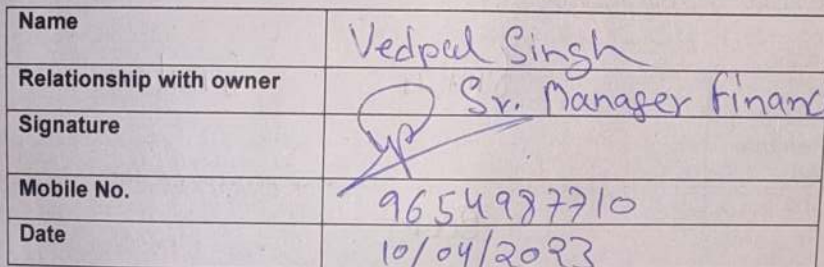 Name Vedpal Singh
Relationship with owner Sr. Manager Financ
Signature
Mobile No. 9654987710
Date 10/04/2023